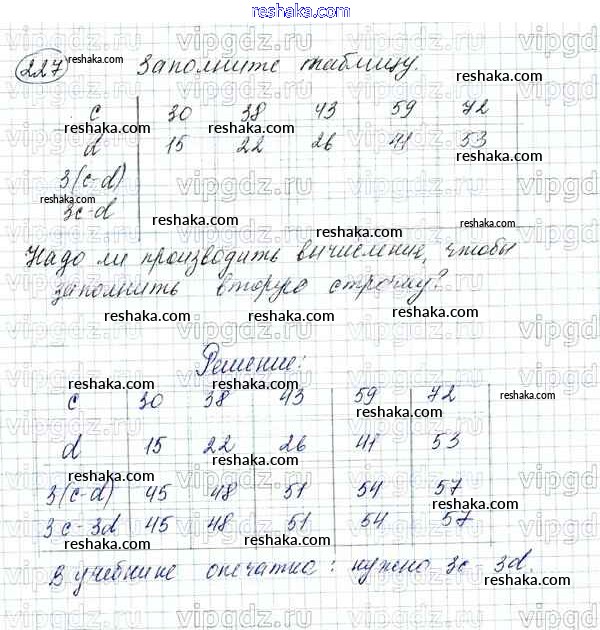 reshaka.com
227 Заполните таблицу.
c 30 38 43 59 72
d 15 22 26 41 53
3(c-d)
3c-d
Надо ли производить вычисление, чтобы
заполнить вторую строчку?
Решение:
c 30 38 43 59 72
d 15 22 26 41 53
3(c-d) 45 48 51 54 57
3c-3d 45 48 51 54 57
В учебнике опечатка: нужно 3c-3d.